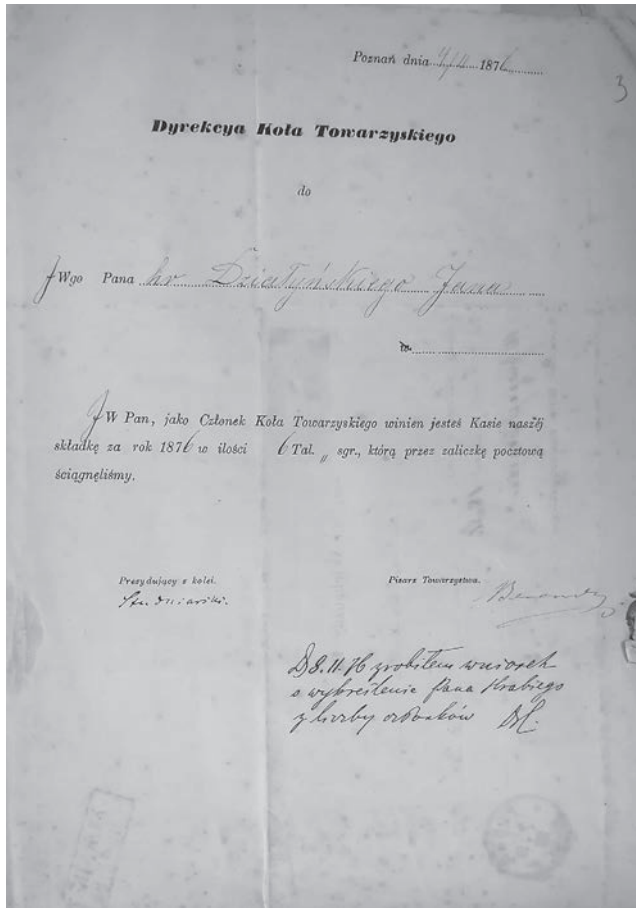 Poznań dnia 4/2 1876
3
Dyrekcya Koła Towarzyskiego
do
JWgo Pana hr Działyńskiego Jana
w
JW Pan, jako Członek Koła Towarzyskiego winien jesteś Kasie naszéj
składkę za rok 1876 w ilości 6 Tal. „ sgr., którą przez zaliczkę pocztową
ściągnęliśmy.
Prezydujący z kolei. Pisarz Towarzystwa.
Studniarski.
D 8.11.76 zrobiłem wniosek
o wykreślenie Pana Hrabiego
z liczby członków